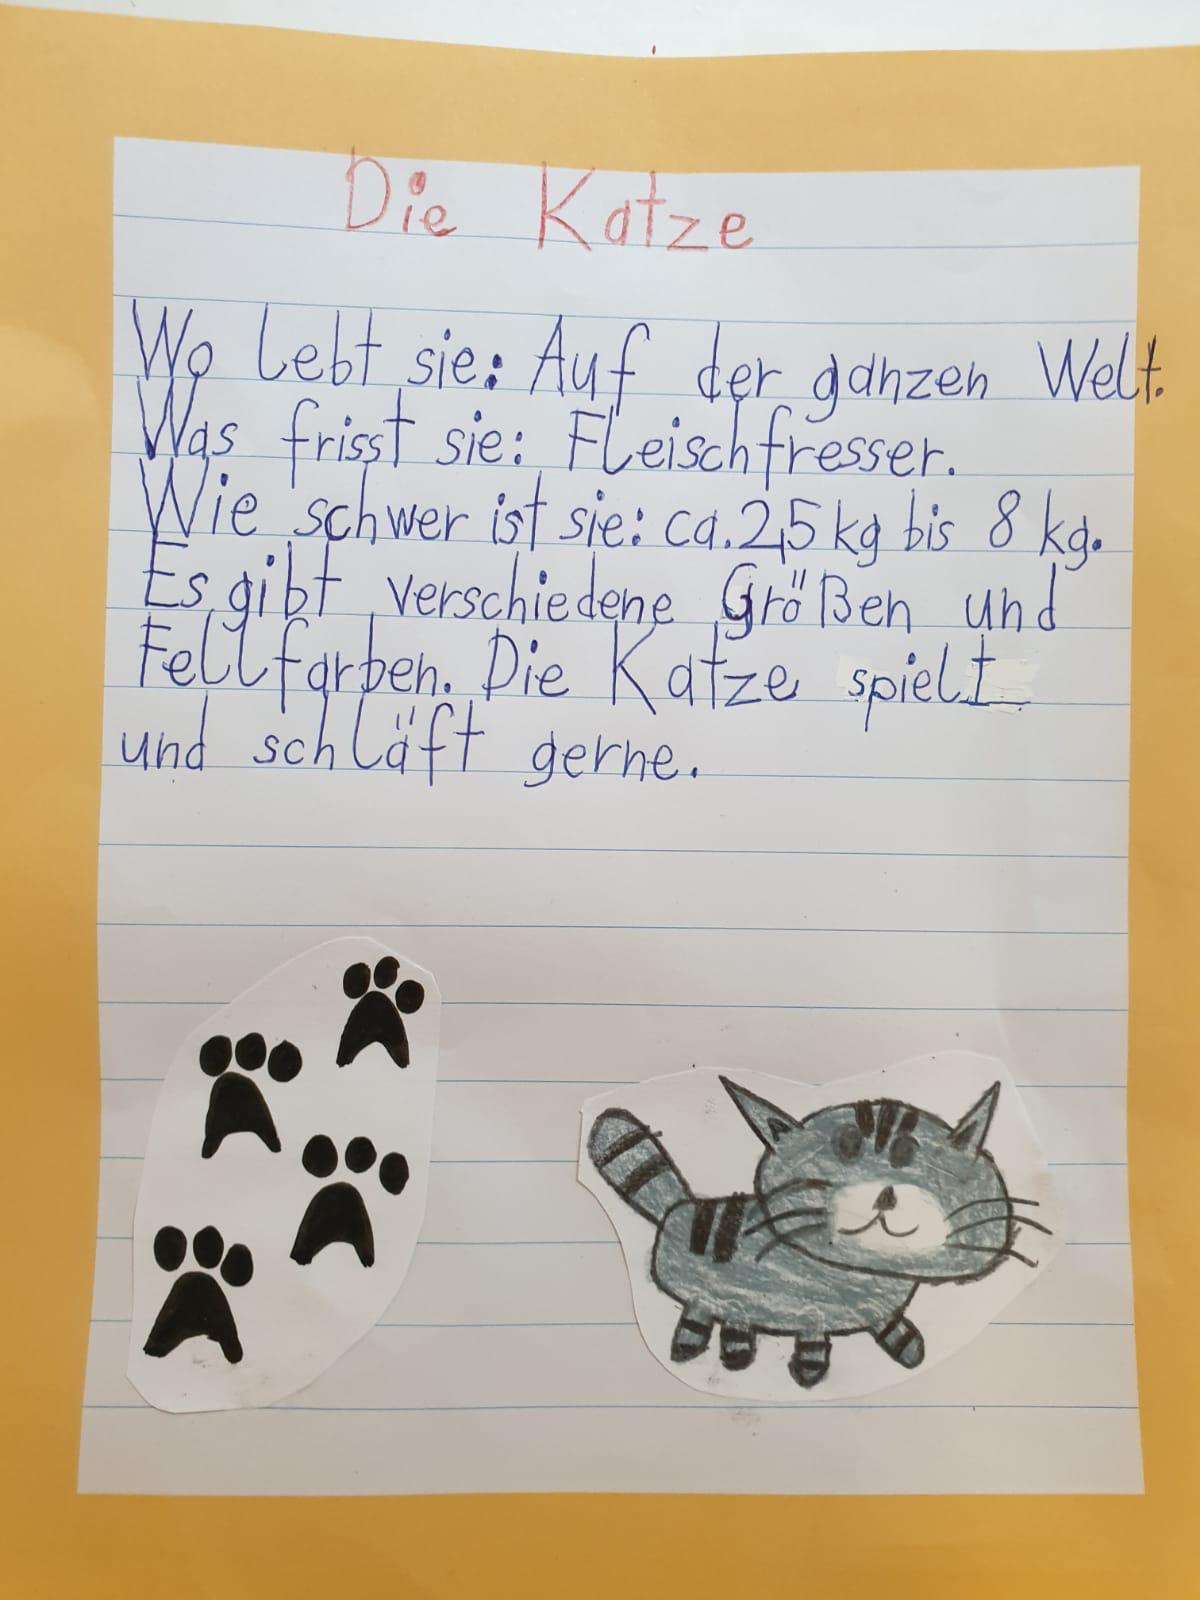 Die Katze
Wo lebt sie: Auf der ganzen Welt.
Was frisst sie: Fleischfresser.
Wie schwer ist sie: ca. 2,5 kg bis 8 kg.
Es gibt verschiedene Größen und
Fellfarben. Die Katze spielt
und schläft gerne.